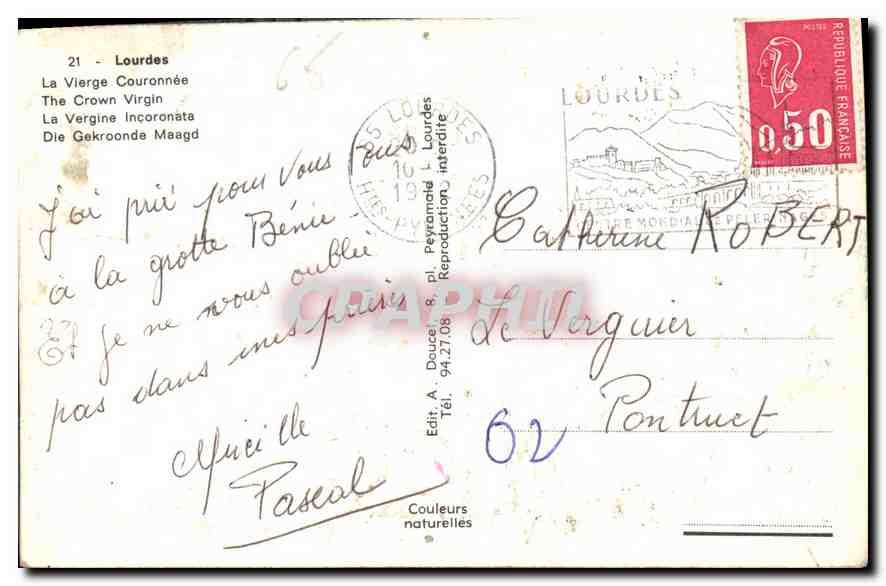 21 - Lourdes
La Vierge Couronnée
The Crown Virgin
La Vergine Inçoronata
Die Gekroonde Maagd
J'ai prié pour Vous tous
à la grotte Bénie
Et je ne vous oublie
pas dans mes prières
Mireille
Pascal
68
Edit. A. Doucet, 8, pl. Peyramale Lourdes
Tél. 94.27.08 Reproduction interdite
Couleurs
naturelles
65 LOURDES
LOURDES
POSTES
REPUBLIQUE FRANÇAISE
0,50
Catherine ROBERT
Le Verguier
Pontruet
02
CPAPHIL